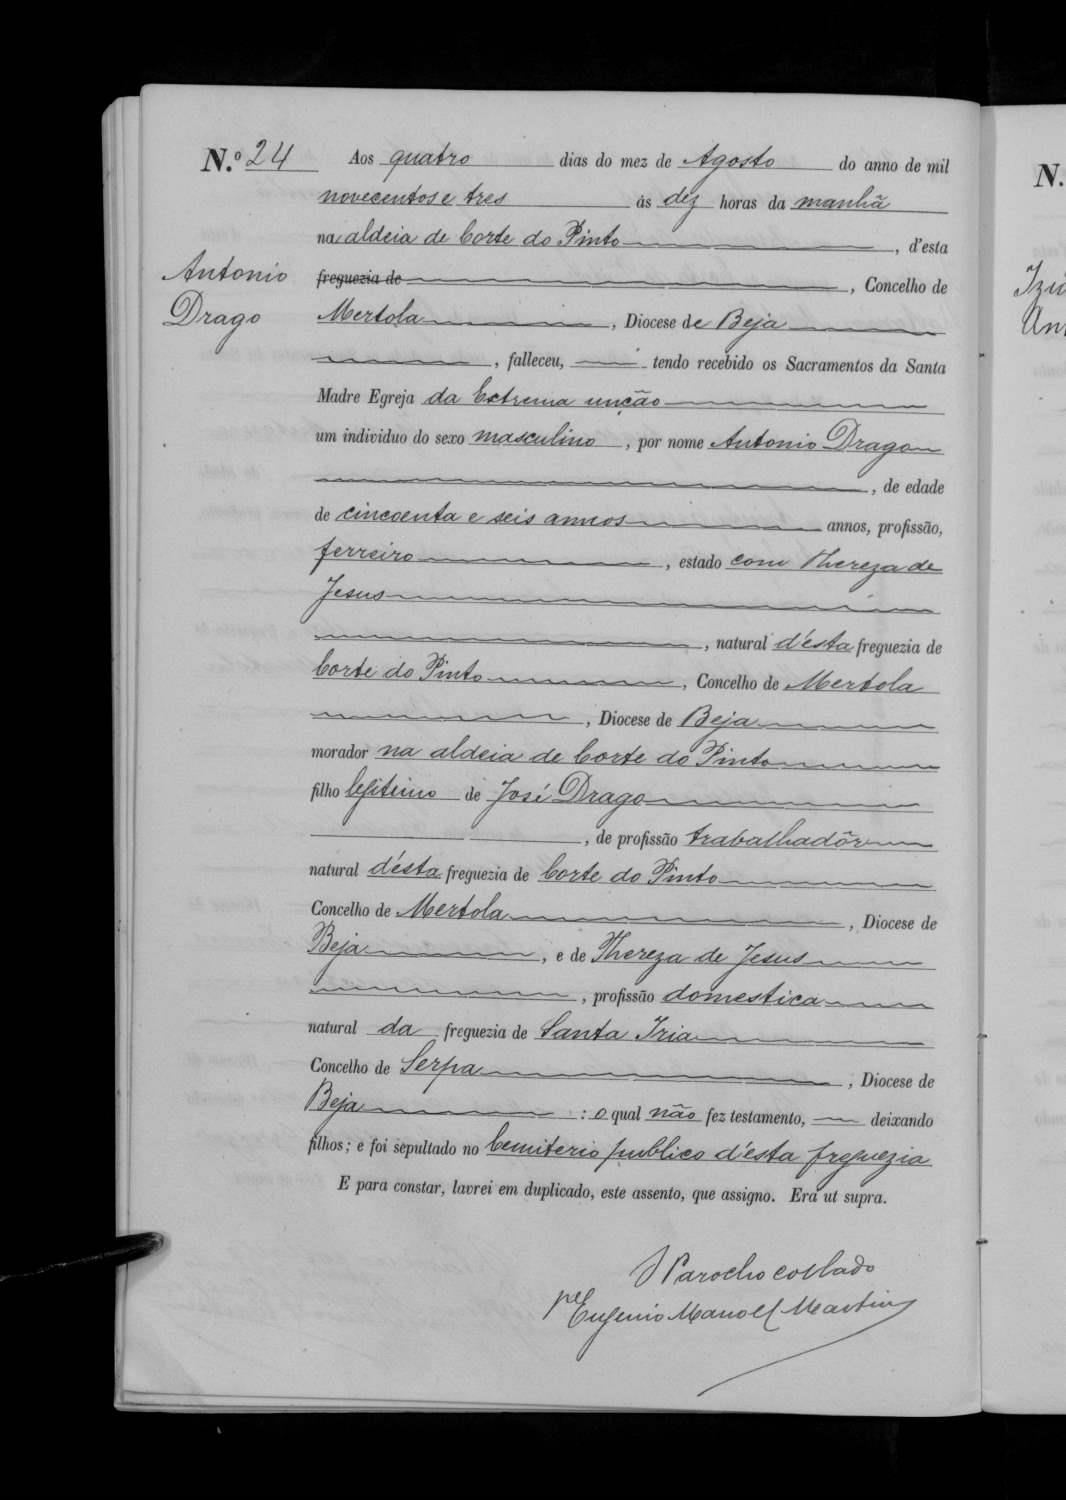 N.º 24
Antonio
Drago
Aos quatro dias do mez de Agosto do anno de mil
novecentos e tres ás dez horas da manhã
na aldeia de Corte do Pinto, d'esta
freguezia de, Concelho de
Mertola, Diocese de Beja
, falleceu, tendo recebido os Sacramentos da Santa
Madre Egreja da Extrema unção
um individuo do sexo masculino, por nome Antonio Drago
, de edade
de cincoenta e seis annos annos, profissão,
ferreiro, estado com Thereza de
Jesus
, natural d'ésta freguezia de
Corte do Pinto, Concelho de Mertola
, Diocese de Beja
morador na aldeia de Corte do Pinto
filho legitimo de José Drago
, de profissão trabalhadôr
natural d'ésta freguezia de Corte do Pinto
Concelho de Mertola, Diocese de
Beja, e de Thereza de Jesus
, profissão domestica
natural da freguezia de Santa Iria
Concelho de Serpa, Diocese de
Beja : o qual não fez testamento, deixando
filhos; e foi sepultado no Cemiterio publico d'ésta freguezia
E para constar, lavrei em duplicado, este assento, que assigno. Era ut supra.
O Parocho collado
Pe Eugenio Manoel Martins
N.